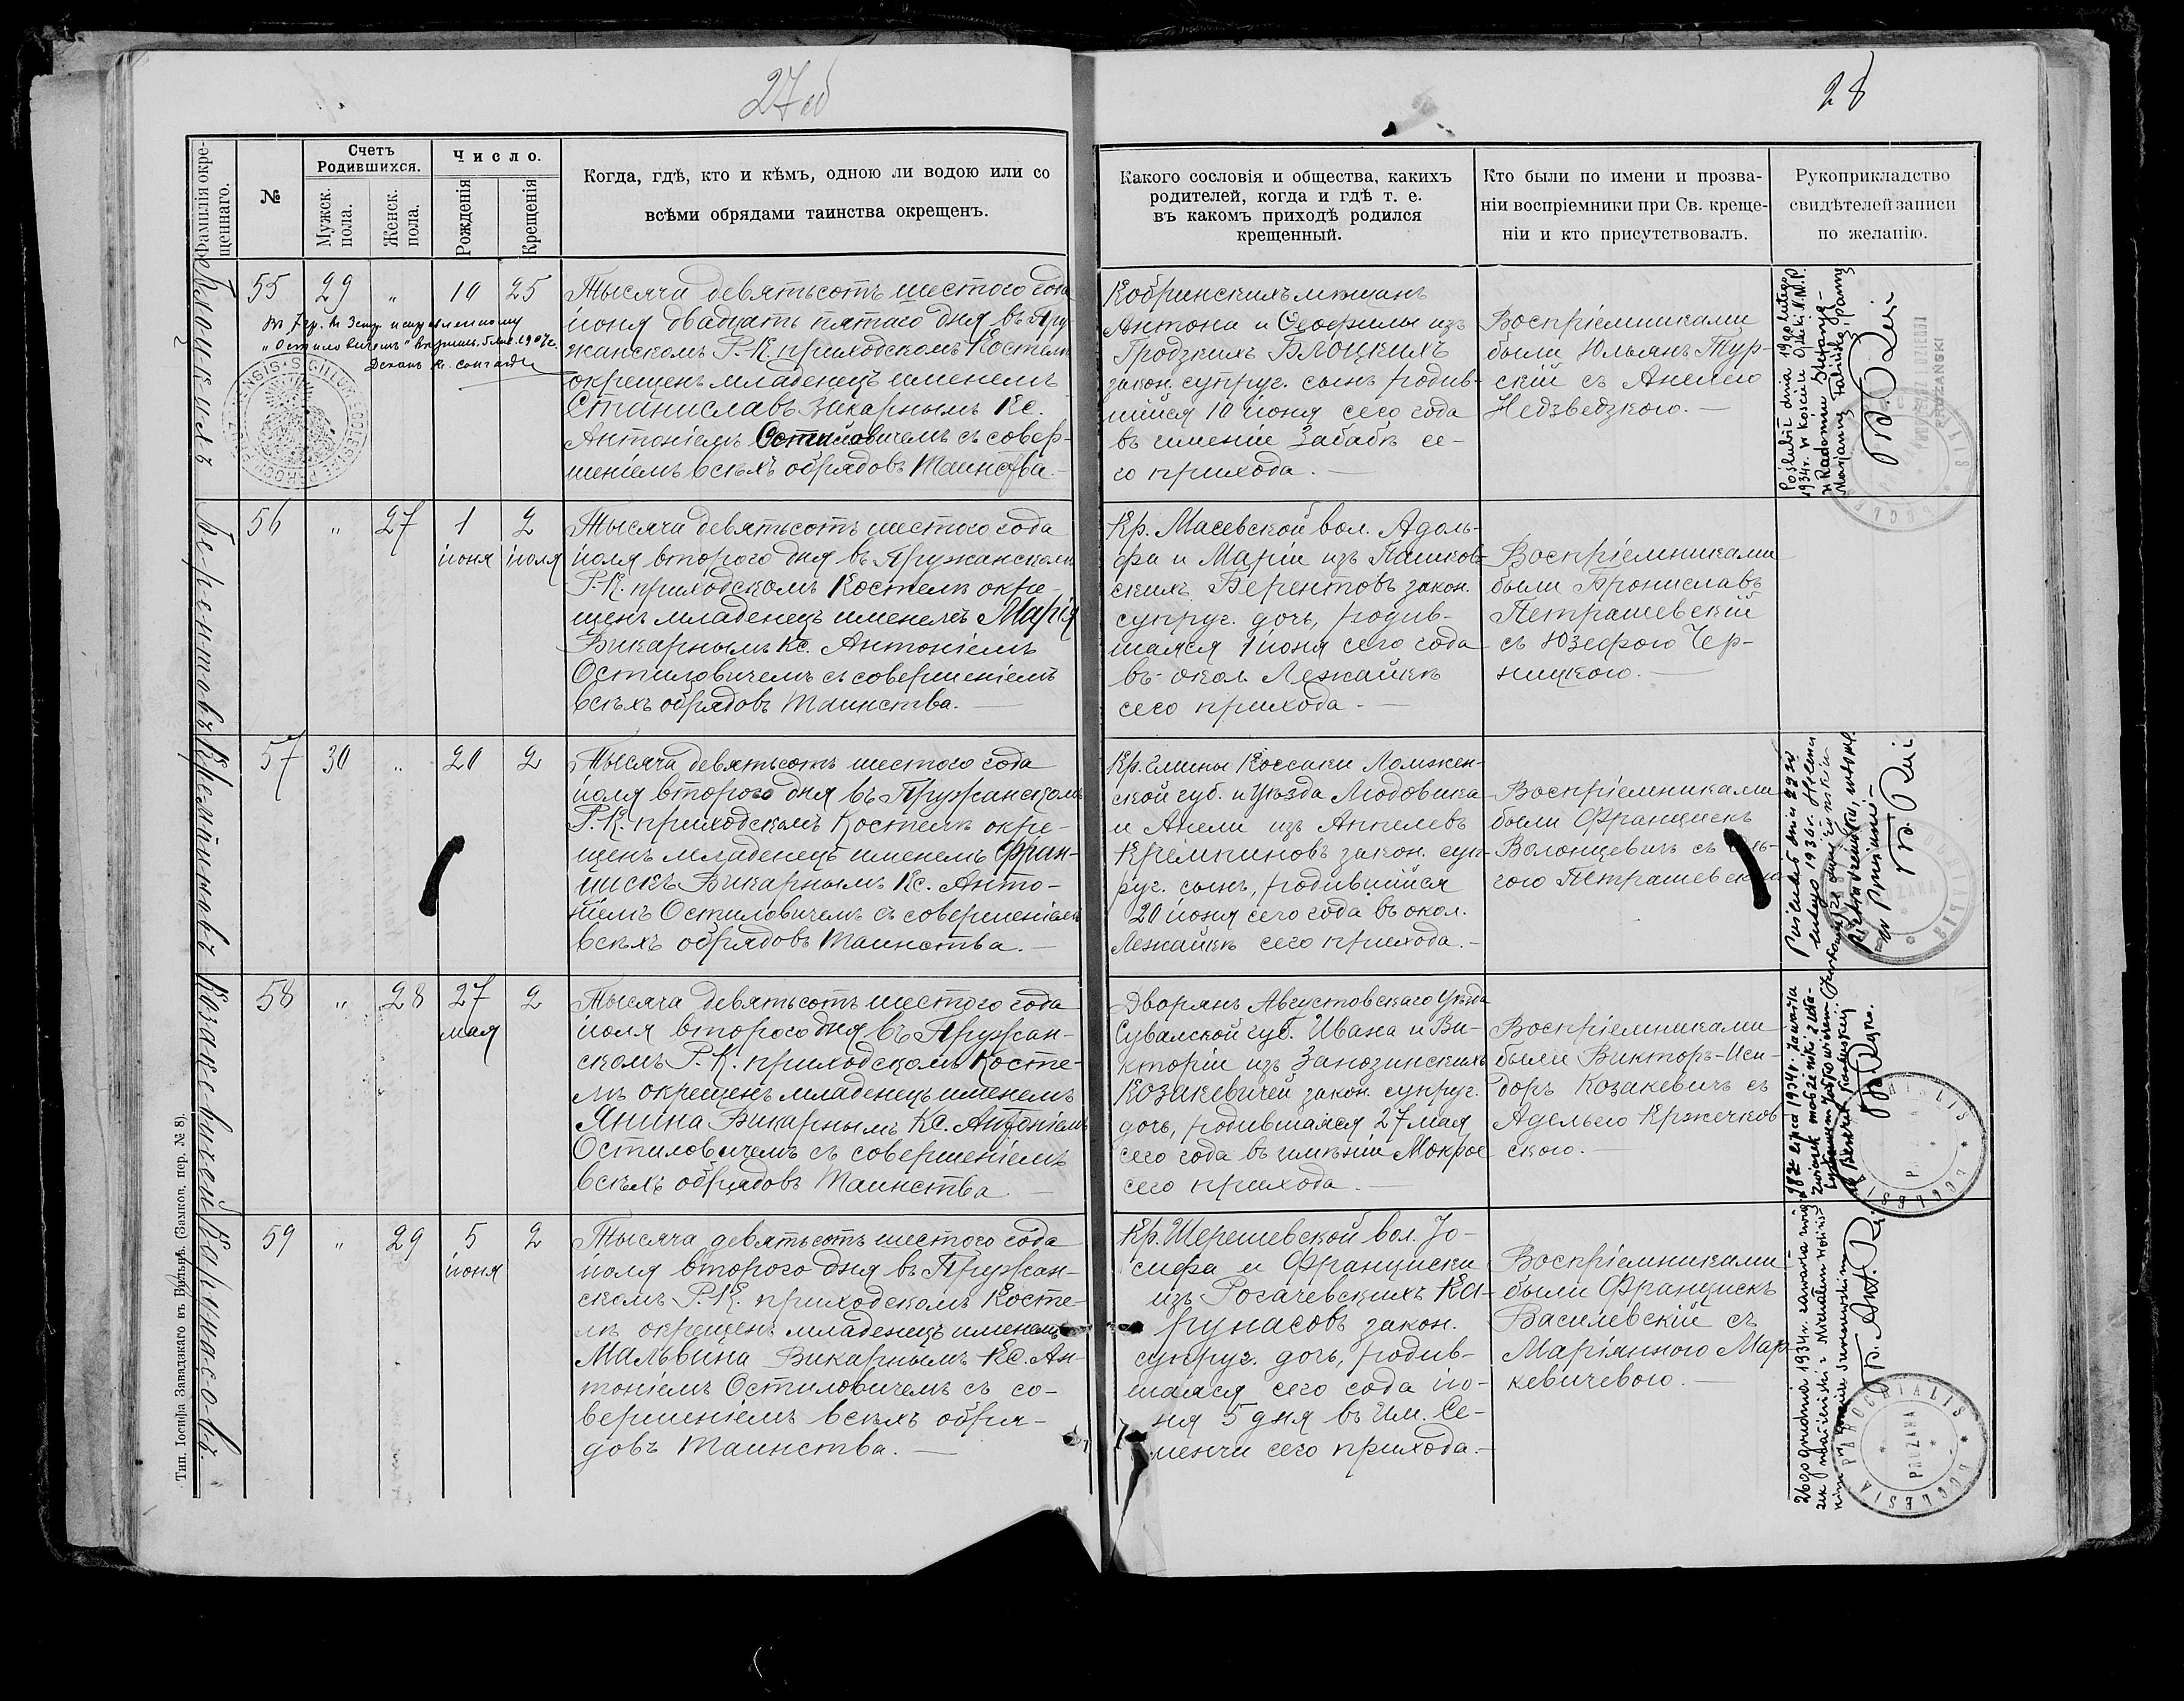 27об
28
Фамилія окре-
щеннаго.
№
Счетъ
Родившихся.
Мужск.
пола.
Женск.
пола.
Число.
Рожденія
Крещенія
Когда, гдѣ, кто и кѣмъ, одною ли водою или со
всѣми обрядами таинства окрещенъ.
Какого сословія и общества, какихъ
родителей, когда и гдѣ т. е.
въ какомъ приходѣ родился
крещенный.
Кто были по имени и прозва-
ніи воспріемники при Св. креще-
ніи и кто присутствовалъ.
Рукоприкладство
свидѣтелей записи
по желанію.
Блоцкихъ
55 29 „ 10 25
Тысяча девятьсотъ шестого года
іюня двадцать пятаго дня въ Пру-
жанскомъ Р.-К. приходскомъ Костелѣ
окрещенъ младенецъ именемъ
Станиславъ Викарнымъ Кс.
Антоніемъ Остиловичемъ съ совер-
шеніемъ всѣхъ обрядовъ Таинства.—
Кобринскихъ мѣщанъ
Антона и Ѳеофилы изъ
Гродзкихъ Блоцкихъ
закон. супруг. сынъ, родив-
шійся 10 іюня сего года
въ имѣніи Забабѣ се-
го прихода.—
Воспріемниками
были Юльянъ Тур-
скій съ Анелею
Недзведзкою.—
Берентовъ
56 „ 27 1 2
іюня іюля
Тысяча девятьсотъ шестого года
іюля второго дня въ Пружанскомъ
Р.-К. приходскомъ Костелѣ окре-
щенъ младенецъ именемъ Марія
Викарнымъ Кс. Антоніемъ
Остиловичемъ съ совершеніемъ
всѣхъ обрядовъ Таинства.—
Кр. Масевской вол. Адоль-
фа и Маріи изъ Пашков-
скихъ Берентовъ закон.
супруг. дочь, родив-
шаяся 1 іюня сего года
въ окол. Лежайкѣ
сего прихода.—
Воспріемниками
были Брониславъ
Петрашевскій
съ Юзефою Чер-
ницкою.—
57 30 „ 20 2
Тысяча девятьсотъ шестого года
іюля второго дня въ Пружанскомъ
Р.К. приходскомъ Костелѣ окре-
щенъ младенецъ именемъ Фран-
цискъ Викарнымъ Кс. Анто-
ніемъ Остиловичемъ съ совершеніемъ
всѣхъ обрядовъ Таинства.—
Кр. гмины Коссаки Ломжен-
ской губ. и Уѣзда Людовика
и Анели изъ
закон. суп-
руг. сынъ, родившійся
20 іюня сего года въ окол.
Лежайкѣ сего прихода.—
Воспріемниками
были Францискъ
Волонцевичъ съ
гою
Козакевичей
58 „ 28 27 2
мая
Тысяча девятьсотъ шестого года
іюля второго дня въ Пружан-
скомъ Р.К. приходскомъ Косте-
лѣ окрещенъ младенецъ именемъ
Янина Викарнымъ Кс. Антоніемъ
Остиловичемъ съ совершеніемъ
всѣхъ обрядовъ Таинства.—
Дворянъ Августовскаго Уѣзда
Сувалской губ. Ивана и Ви-
кторіи изъ Занозинскихъ
Козакевичей закон. супруг.
дочь, родившаяся 27 мая
сего года въ имѣніи Мокрое
сего прихода.—
Воспріемниками
были Викторъ-Иси-
доръ Козакевичъ съ
Аделью Кржечков-
скою.—
Карунасовъ.
59 „ 29 5 2
іюня
Тысяча девятьсотъ шестого года
іюля второго дня въ Пружан-
скомъ Р.К. приходскомъ Косте-
лѣ окрещенъ младенецъ именемъ
Мальвина Викарнымъ Кс. Ан-
тоніемъ Остиловичемъ съ со-
вершеніемъ всѣхъ обря-
довъ Таинства.—
Кр. Шерешевской вол. Іо-
сифа и Францишки
изъ Рогачевскихъ Ка-
рунасовъ закон.
супруг. дочь, родив-
шаяся сего года ію-
ня 5 дня въ Им. Се-
менчи сего прихода.—
Воспріемниками
были Францискъ
Василевскій съ
Маріянною Мар-
кевичевою.—
ECCLESIA PAROCHIALIS
PRUZANA
Тип. Іосифа Завадзкаго въ Вильнѣ. (Замков. пер. № 8).